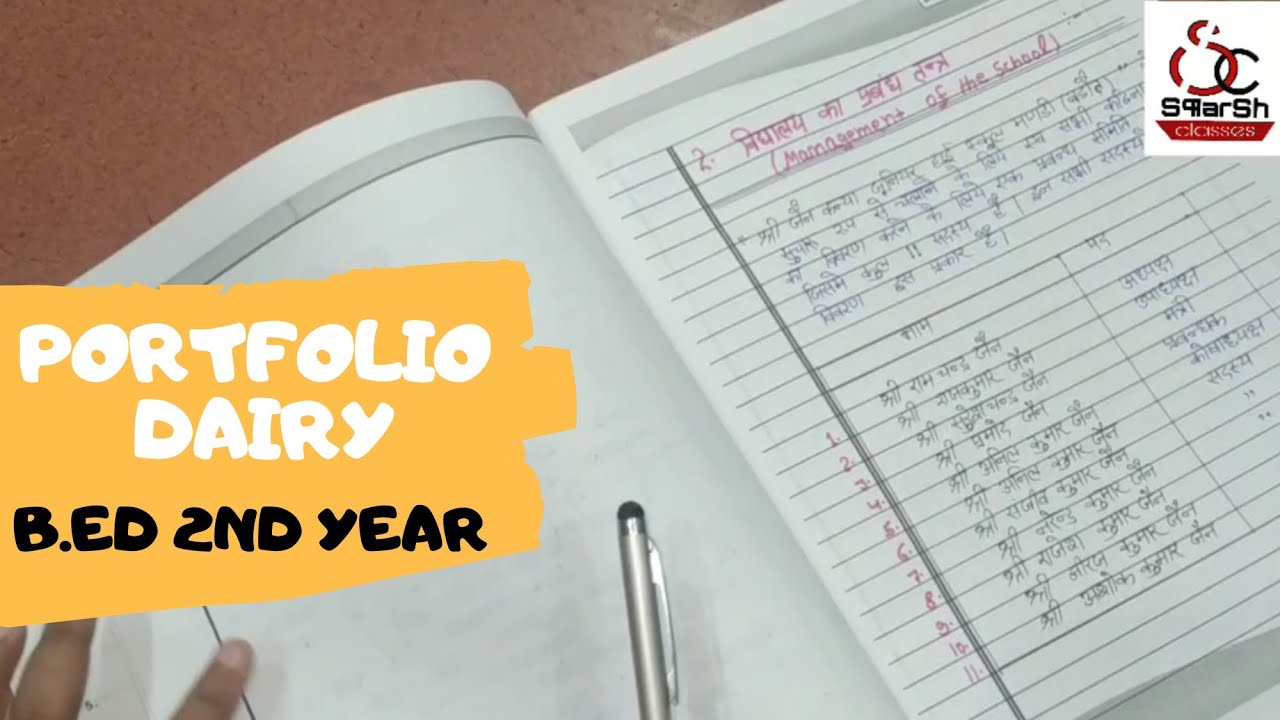 PORTFOLIO
DAIRY
B.ED 2ND YEAR
SपarSh
classes
2. विद्यालय का प्रबंध तन्त्र
(Management of the School)
"श्री जैन कन्या जूनियर हाई स्कूल मण्डी (बड़ौत)"
सुचारू रूप से चलाने के लिये सब सभी
का विवरण करने के लिये एक प्रबन्ध समिति
जिसमे कुल 11 सदस्य है। इन सभी सदस्यो
विवरण इस प्रकार है।
नाम पद
1. श्री राम चन्द्र जैन अध्यक्ष
2. श्री राजकुमार जैन उपाध्यक्ष
3. श्री सुरेशचन्द्र जैन मंत्री
4. श्री प्रमोद जैन प्रबन्धक
5. श्री अनिल कुमार जैन कोषाध्यक्ष
6. श्री अनिल कुमार जैन सदस्य
7. श्री संजीव कुमार जैन "
8. श्री नरेन्द्र कुमार जैन "
9. श्री राजेश कुमार जैन
10. श्री नीरज कुमार जैन
11. श्री अशोक कुमार जैन
5.